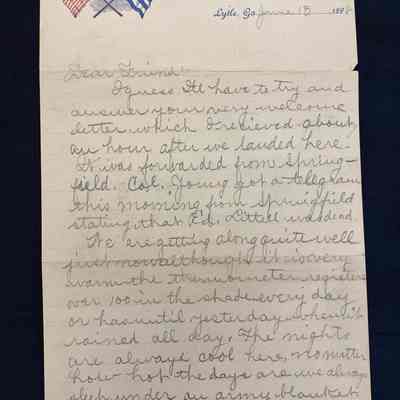 Lytle, Ga. June 15 1898
Dear Friend:
I guess I'll have to try and
answer your very welcome
letter which I recieved about
an hour after we landed here.
It was forwarded from Spring-
field. Col. got a telegram
this morning from Springfield
stating that Ed. Littell was dead.
We are getting along quite well
just now although it is very
warm the thermometer registers
over 100 in the shade every day
or has until yesterday when it
rained all day. The nights
are always cool here, no matter
how hot the days are we always
sleep under an army blanket